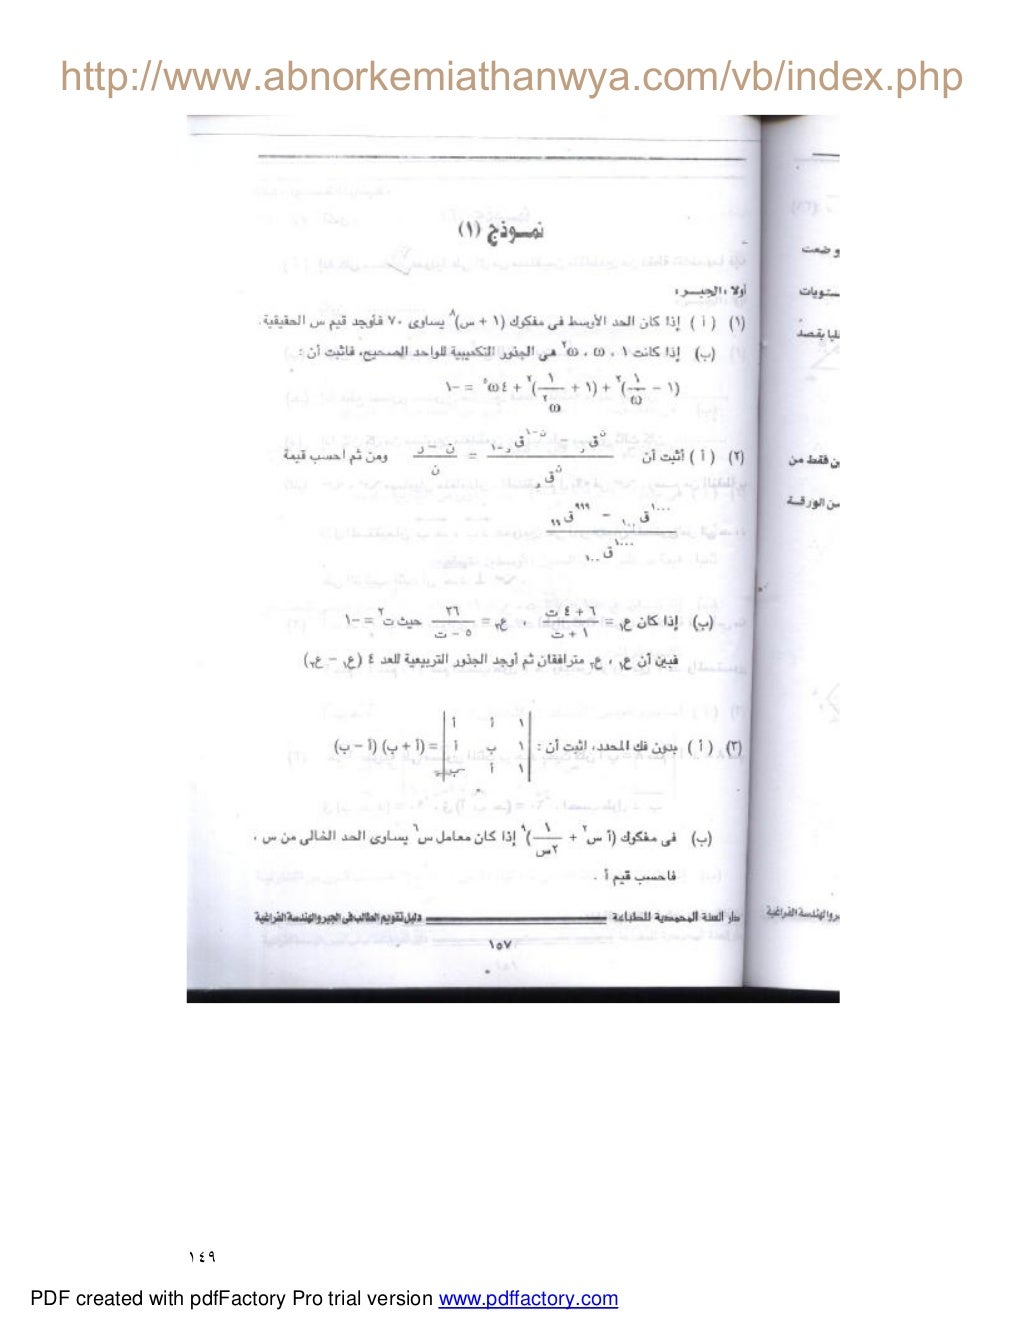 http://www.abnorkemiathanwya.com/vb/index.php
نمـوذج (١)
أولا : الجبـر :
(١) ( أ ) إذا كان الحد الأوسط فى مفكوك (١ + س)^٨ يساوى ٧٠ فأوجد قيم س الحقيقية.
(ب) إذا كانت ١ ، ω ، ω^٢ هى الجذور التكعيبية للواحد الصحيح، فاثبت أن :
(١ − ١/ω)^٢ + (١ + ١/ω^٢)^٢ + ٤ω^٥ = −١
(٢) ( أ ) أثبت أن (^ن ق_ر − ^ن−١ ق_ر−١) / ^ن ق_ر = (ن − ر) / ن ومن ثم احسب قيمة
(^١٠٠٠ ق_١٠٠ − ^٩٩٩ ق_٩٩) / ^١٠٠٠ ق_١٠٠
(ب) إذا كان ع_١ = (٦ + ٤ ت) / (١ + ت) ، ع_٢ = ٢٦ / (٥ − ت) حيث ت^٢ = −١
فبين أن ع_١ ، ع_٢ مترافقان ثم أوجد الجذور التربيعية للعدد ٤ (ع_١ − ع_٢)
(٣) ( أ ) بدون فك المحدد، اثبت أن : | ١ أ أ | = (أ + ب) (أ − ب)
| ١ ب أ |
| ١ أ −ب |
(ب) فى مفكوك (أ س^٢ + ١/٢س)^٩ إذا كان معامل س^٦ يساوى الحد الخالى من س ،
فاحسب قيم أ .
دار السنة المحمدية للطباعة دليل تقويم الطالب فى الجبر والهندسة الفراغية
١٥٧
و ضعت
ستويات
ن فقط من
ن الورقة
بر والهندسة الفراغية
١٤٩
PDF created with pdfFactory Pro trial version www.pdffactory.com